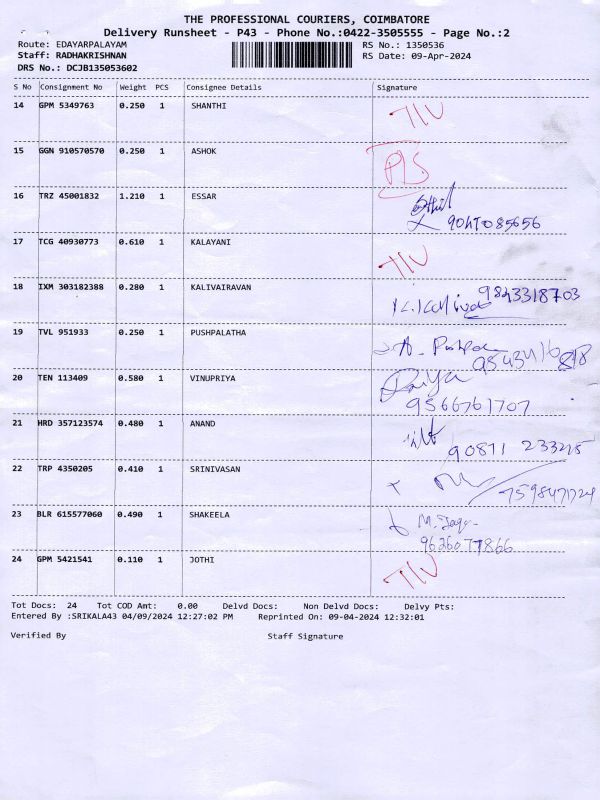 THE PROFESSIONAL COURIERS, COIMBATORE
Delivery Runsheet - P43 - Phone No.:0422-3505555 - Page No.:2
Route: EDAYARPALAYAM RS No.: 1350536
Staff: RADHAKRISHNAN RS Date: 09-Apr-2024
DRS No.: DCJB135053602
S No Consignment No Weight PCS Consignee Details Signature
14 GPM 5349763 0.250 1 SHANTHI
15 GGN 910570570 0.250 1 ASHOK
16 TRZ 45001832 1.210 1 ESSAR
17 TCG 40930773 0.610 1 KALAYANI
18 IXM 303182388 0.280 1 KALIVAIRAVAN 9843318703
19 TVL 951933 0.250 1 PUSHPALATHA A. Pushpa
20 TEN 113409 0.580 1 VINUPRIYA Priya
9566761707
21 HRD 357123574 0.480 1 ANAND
22 TRP 4350205 0.410 1 SRINIVASAN
23 BLR 615577060 0.490 1 SHAKEELA
24 GPM 5421541 0.110 1 JOTHI
Tot Docs: 24 Tot COD Amt: 0.00 Delvd Docs: Non Delvd Docs: Delvy Pts:
Entered By :SRIKALA43 04/09/2024 12:27:02 PM Reprinted On: 09-04-2024 12:32:01
Verified By Staff Signature